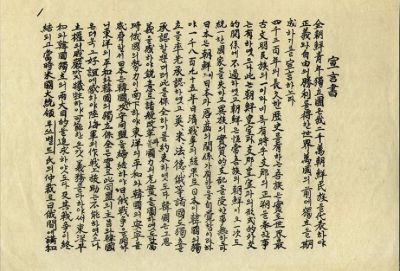 宣言書
全朝鮮靑年獨立團은我二千萬朝鮮民族을代表하야
正義와自由의勝利를得한世界萬國의前에獨立을期
成하기를宣言하노라
四千三百年의長久한歷史를有하는吾族은實로世界最
古文明民族의一이라비록有時乎支那의正朔을奉한事
는有하엿스나此는朝鮮皇室과支那皇室과의形式的外交
的關係에不過하엿고朝鮮은恒常吾族의朝鮮이고一次도
統一한國家를失하고異族의實質的支配를受한事無하도다
日本은朝鮮이日本과脣齒의關係가有함을自覺함이라하
야一千八百九十五年日淸戰爭의結果로日本이韓國의獨
立을率先承認하엿고英、米、法、德、俄等諸國도獨立을
承認할뿐더러此를保全하기를約束하엿도다韓國은그恩
義를感하야銳意로諸般改革과國力의充實을圖하엿도다當
時俄國의勢力이南下하야東洋의平和와韓國의安寧을
威脅할새日本은韓國과攻守同盟을締結하야日俄戰爭을開하
니東洋의平和와韓國의獨立保全은實로此同盟의主旨라韓國
은더욱그好誼에感하야陸海軍의作戰上援助는不能하엿스나
主權의威嚴까지犧牲하야可能한온갓義務를다하야써東洋平
和와韓國獨立의兩大目的을追求하얏도다及其戰爭이終
結되고當時米國大統領루쓰벨트氏의仲裁로日俄間에講和